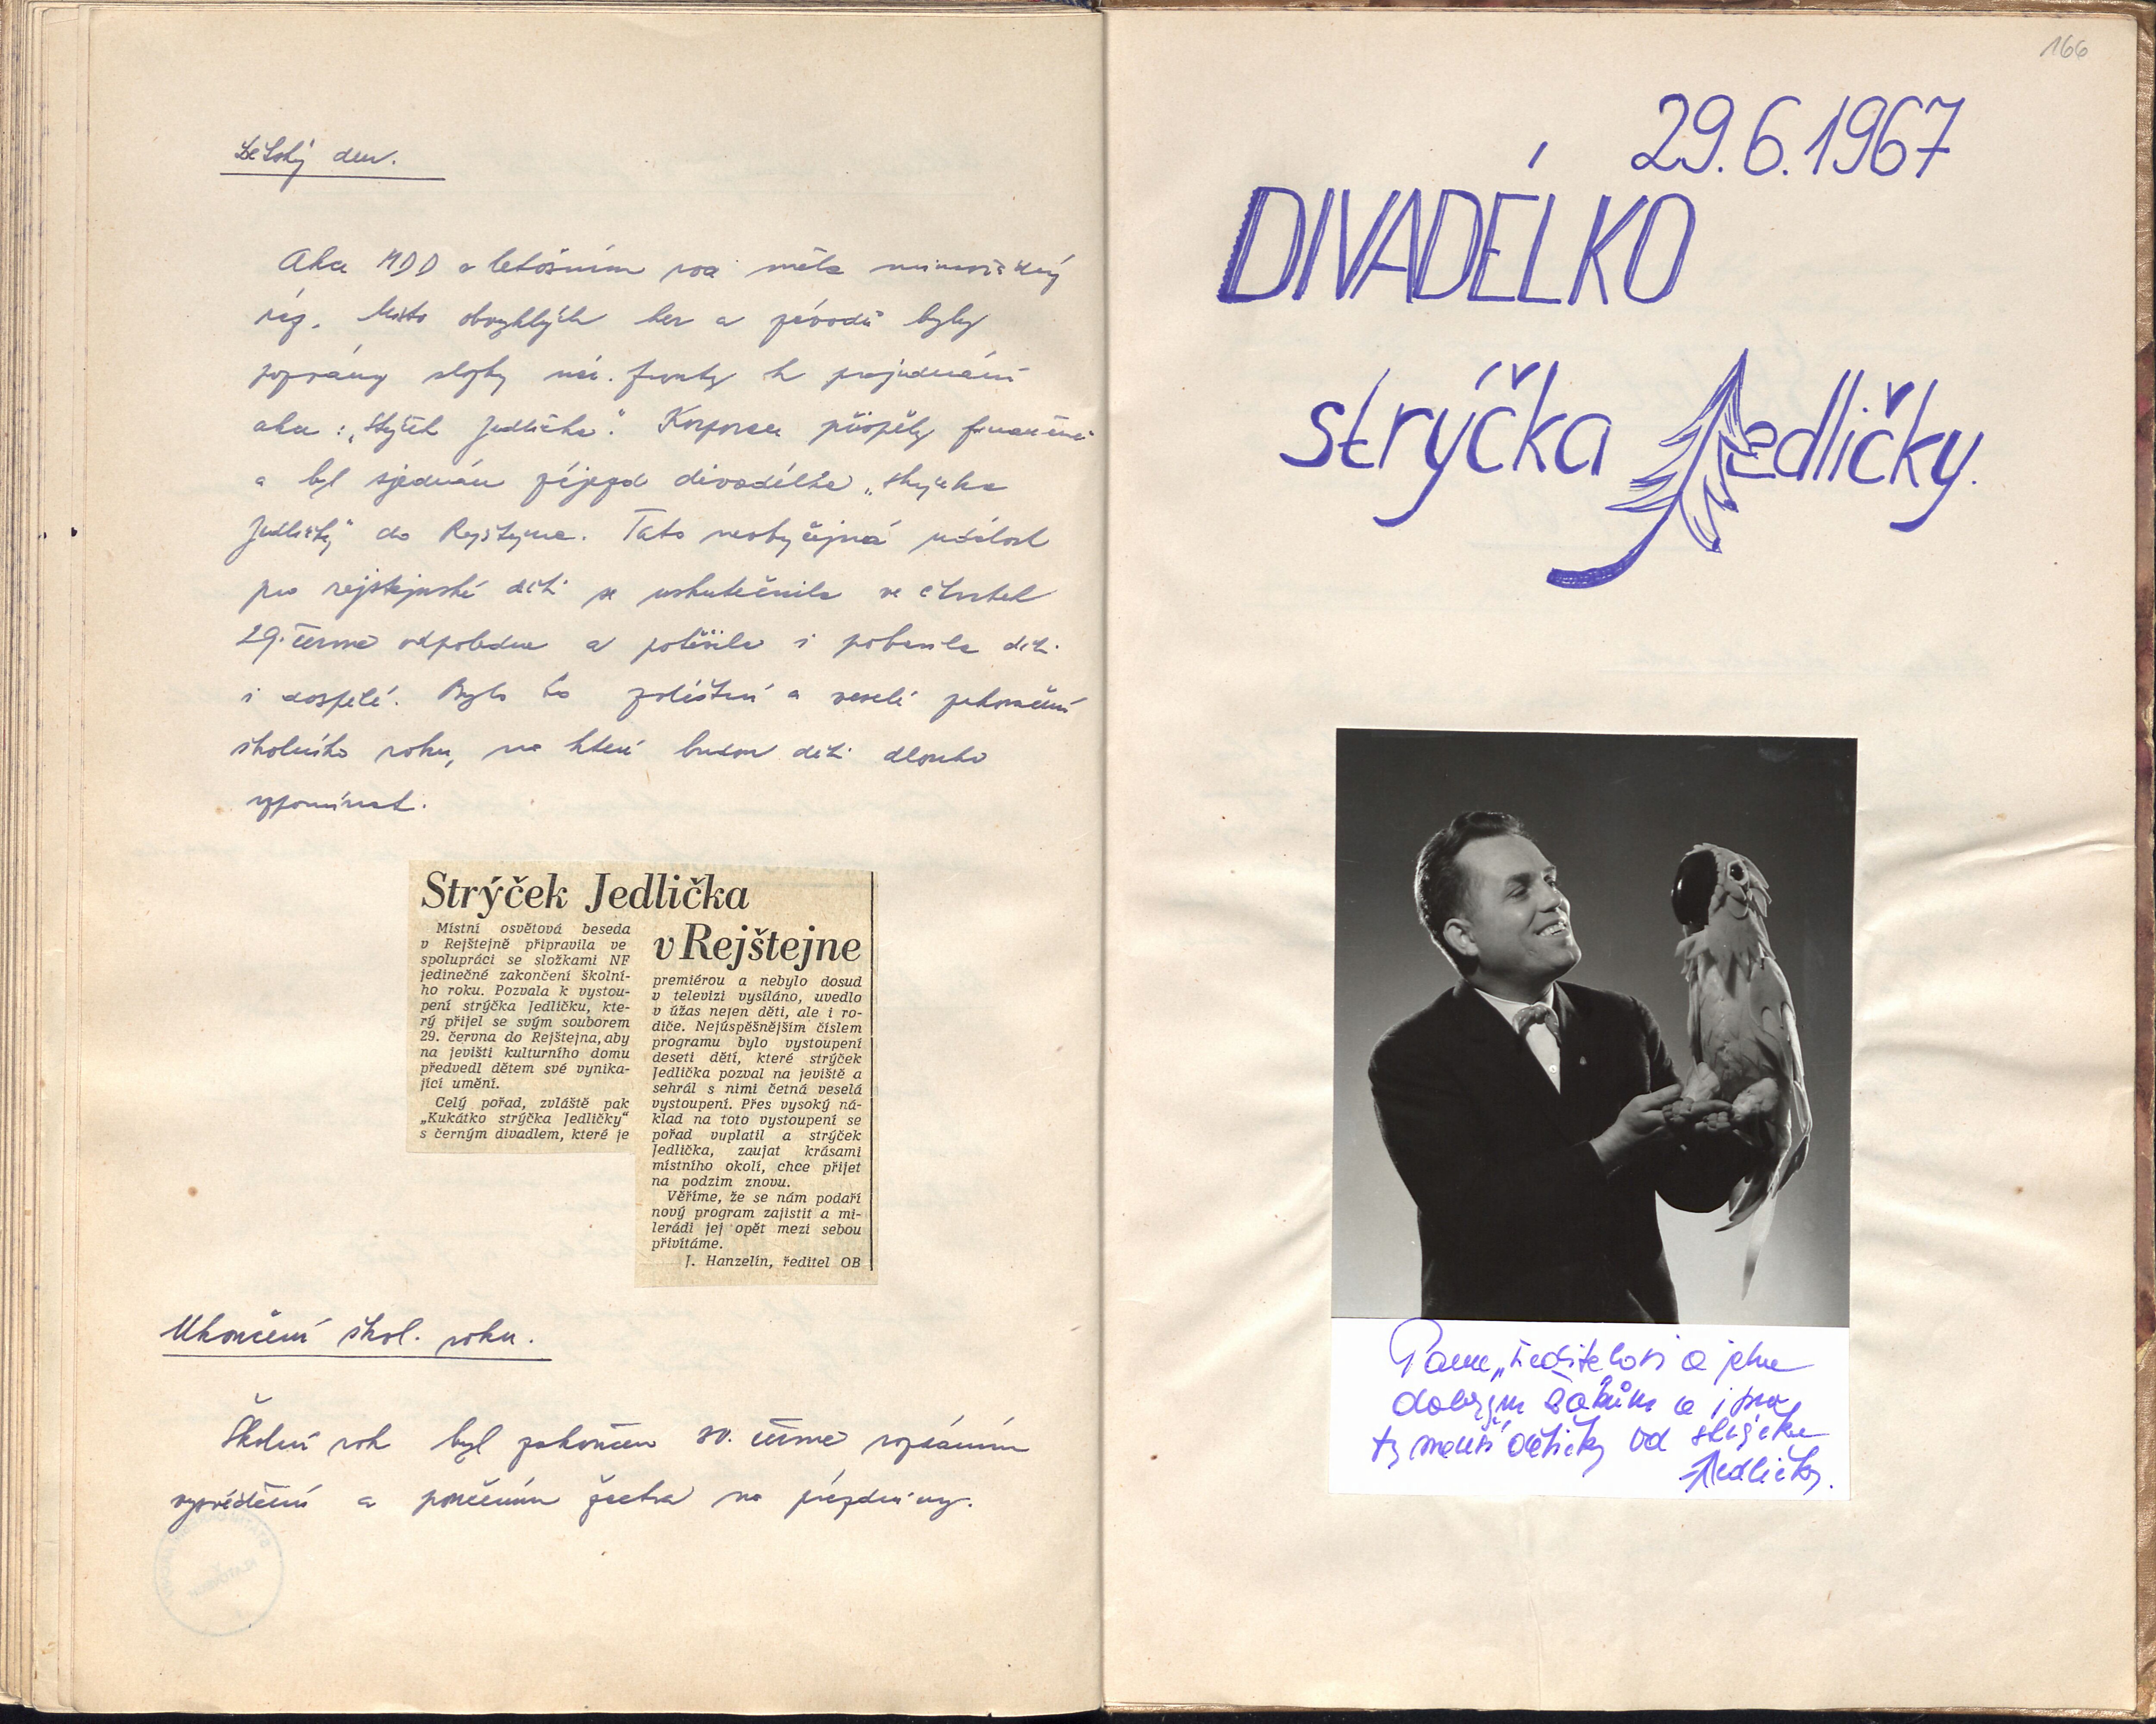 Dětský den.
Akce MDD v letošním roce měla mimořádný
ráz. Místo obvyklých her a závodů byly
popsány složky nár. fronty k projednání
akce: „Strýček Jedlička". Korporace přispěly finančně
a byl sjednán zájezd divadélka „strýčka
Jedličky" do Rejštejna. Tato neobyčejná událost
pro rejštejnské děti se uskutečnila ve čtvrtek
29. června odpoledne a potěšila i pobavila děti
i dospělé. Bylo to zvláštní a veselé zakončení
školního roku, na které budou děti dlouho
vzpomínat.
Strýček Jedlička
v Rejštejne
Místní osvětová beseda
v Rejštejně připravila ve
spolupráci se složkami NF
jedinečné zakončení školní-
ho roku. Pozvala k vystou-
pení strýčka Jedličku, kte-
rý přijel se svým souborem
29. června do Rejštejna, aby
na jevišti kulturního domu
předvedl dětem své vynika-
jící umění.
Celý pořad, zvláště pak
„Kukátko strýčka Jedličky"
s černým divadlem, které je
premiérou a nebylo dosud
v televizi vysíláno, uvedlo
v úžas nejen děti, ale i ro-
diče. Nejúspěšnějším číslem
programu bylo vystoupení
deseti dětí, které strýček
Jedlička pozval na jeviště a
sehrál s nimi četná veselá
vystoupení. Přes vysoký ná-
klad na toto vystoupení se
pořad vyplatil a strýček
Jedlička, zaujat krásami
místního okolí, chce přijet
na podzim znovu.
Věříme, že se nám podaří
nový program zajistit a mi-
lerádi jej opět mezi sebou
přivítáme.
J. Hanzelín, ředitel OB
Ukončení škol. roku.
Školní rok byl zakončen 30. června rozdáním
vysvědčení a poučením žactva na prázdniny.
166
29.6.1967
DIVADÉLKO
strýčka Jedličky.
Panu „řediteli a jeho
dobrým žákům a i pro
ty menší dětičky od strýčka
Jedličky.